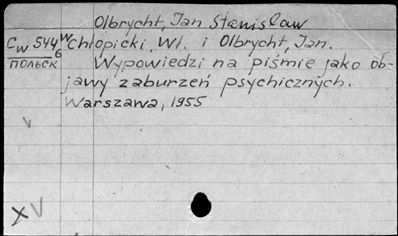 Olbrycht, Jan Stanisław
Cw 544 W Chłopicki, Wł. i Olbrycht, Jan.
6
польск Wypowiedzi na piśmie jako ob-
jawy zaburzeń psychicznych.
Warszawa, 1955
V
XV